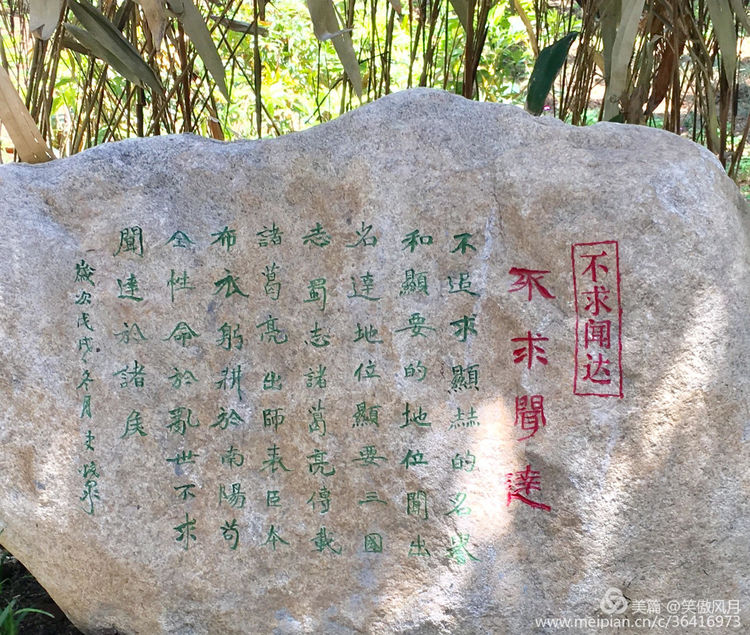 不求闻达
不求聞達
不追求顯赫的名誉
和顯要的地位聞出
名達地位顯要三國
志蜀志諸葛亮傳載
諸葛亮出師表臣本
布衣躬耕於南陽苟
全性命於亂世不求
聞達於諸矦
歲次戊戌冬月
美篇 @笑傲风月
www.meipian.cn/c/36416973